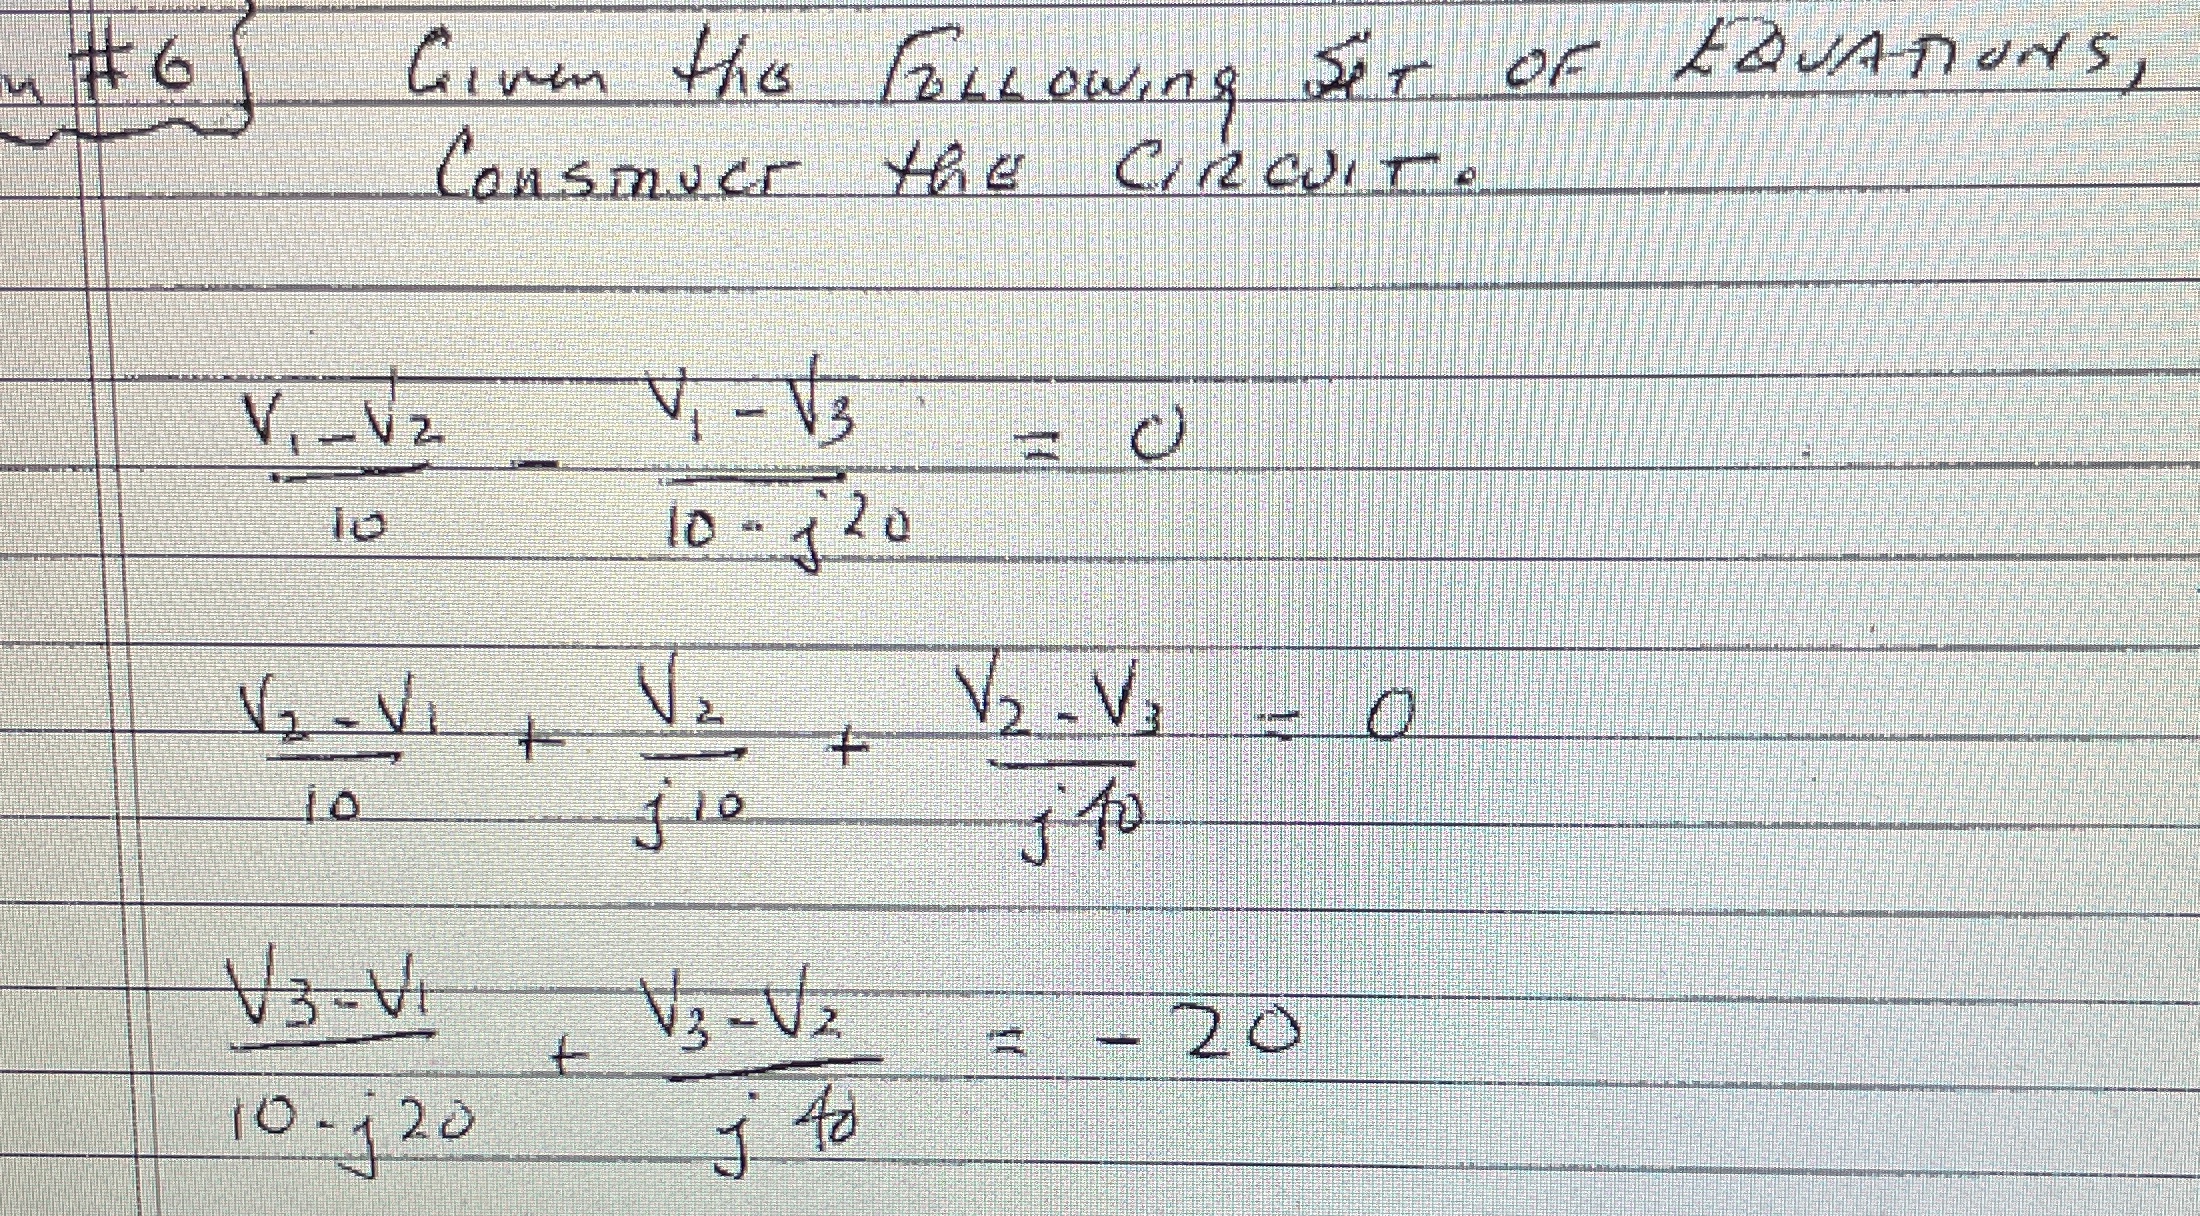 m #6} Given the Following Set OF EQUATIONS,
Construct the Circuit.
V1 - V2 / 10 - V1 - V3 / 10 - j20 = 0
V2 - V1 / 10 + V2 / j10 + V2 - V3 / j40 = 0
V3 - V1 / 10 - j20 + V3 - V2 / j40 = -20